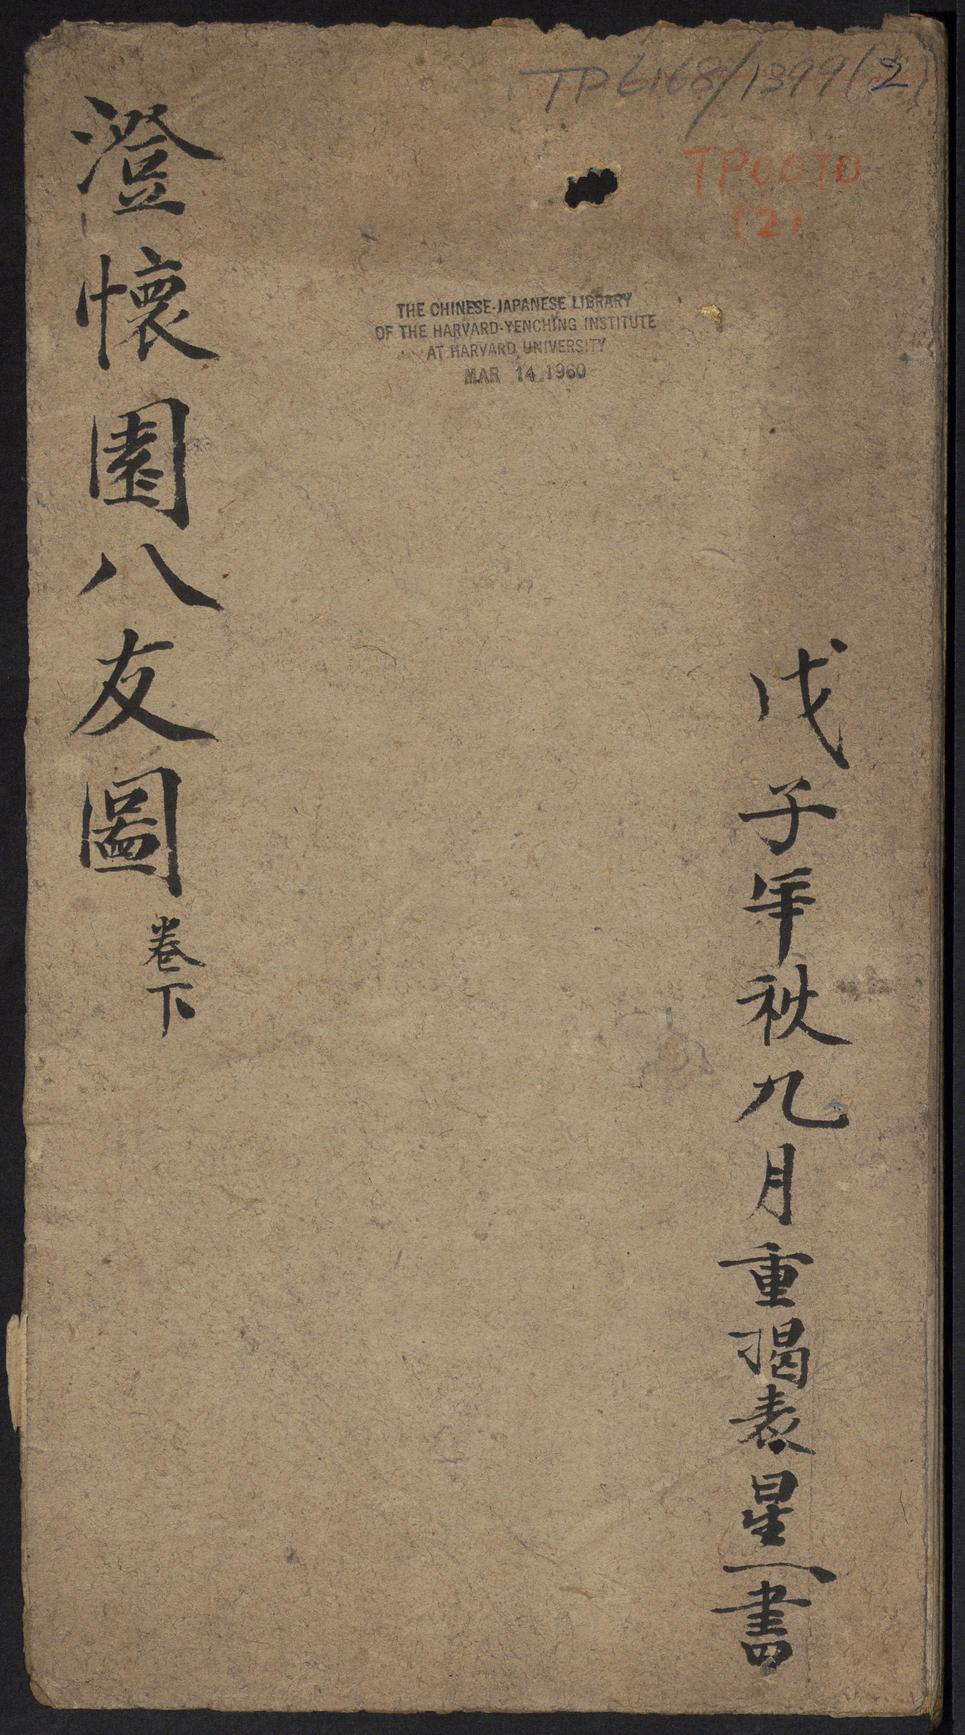 TP 6168/1399(2)
TP0070
(2)
THE CHINESE-JAPANESE LIBRARY
OF THE HARVARD-YENCHING INSTITUTE
AT HARVARD UNIVERSITY
MAR 14 1960
戊子年秋九月重揭裱星一書
澄懷園八友圖
卷下